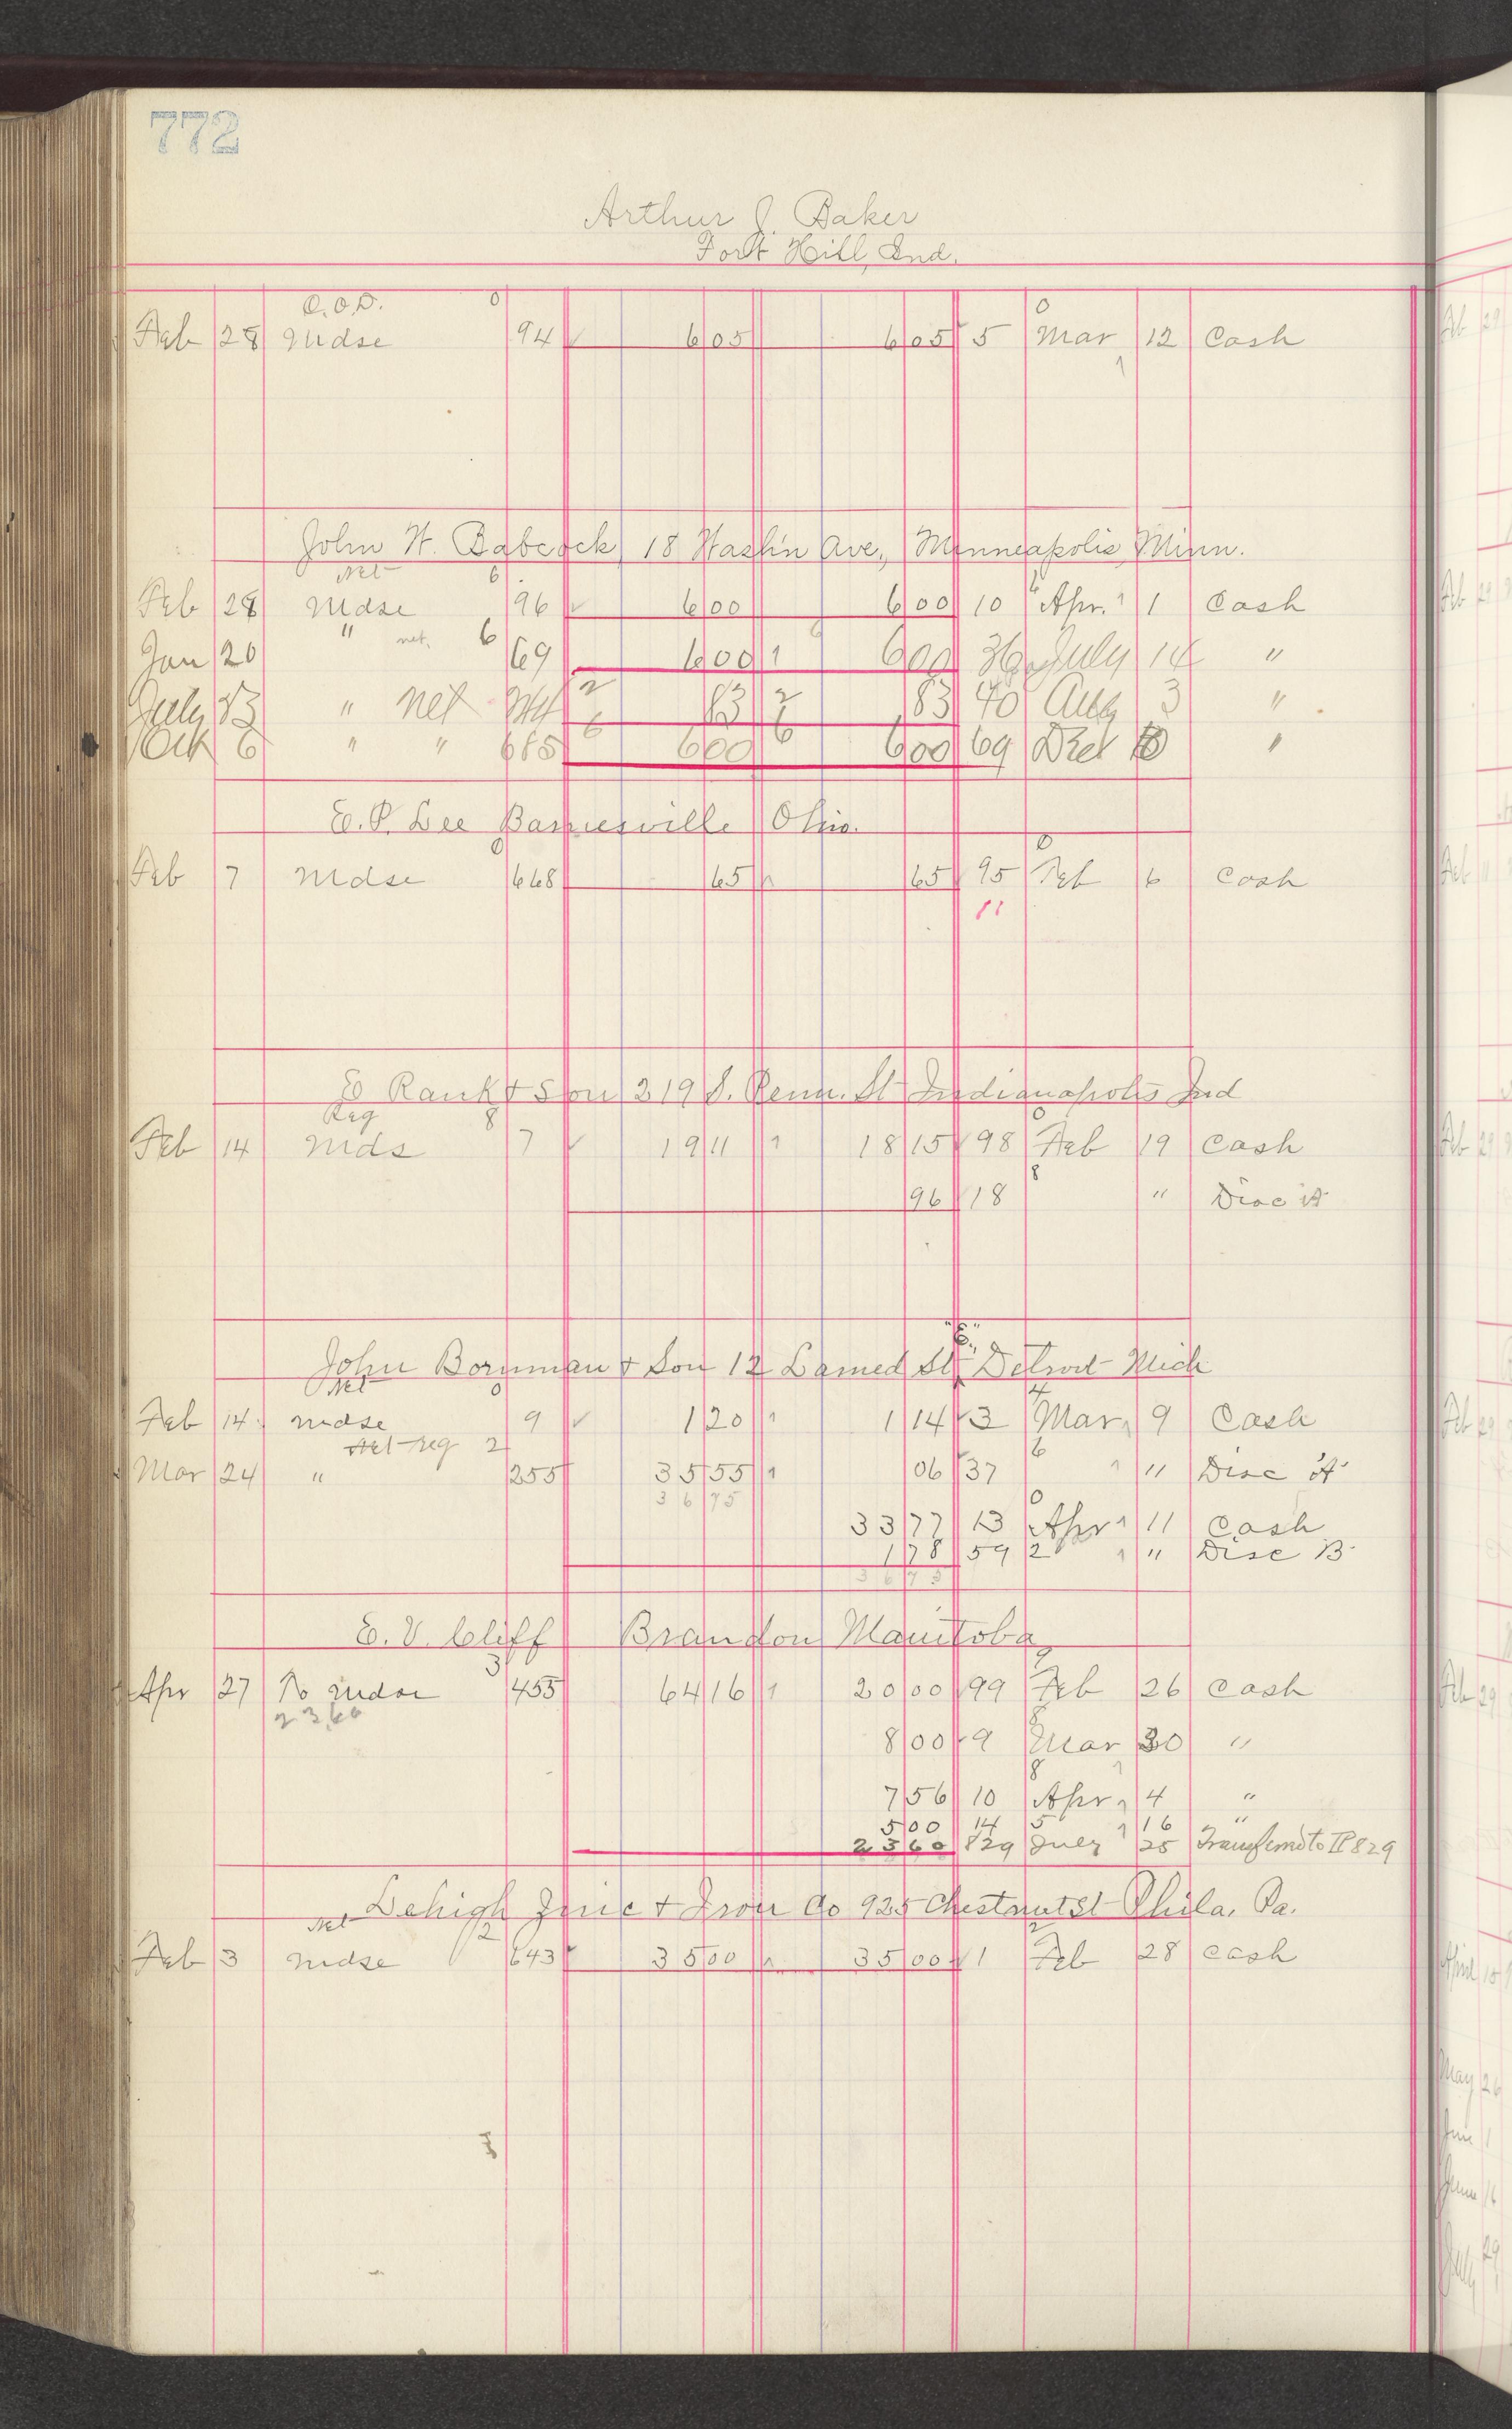 772
Arthur J. Baker
Fort Hill, Ind.
C.O.D. 0 0
Feb 28 Mdse 94 6 05 6 05 5 Mar 12 Cash
John W. Babcock, 18 Wash'n Ave, Minneapolis Minn.
Net 6
Feb 28 Mdse 96 6 00 6 00 10 Apr. 1 Cash
Jan 20 " net. 6 69 6 00 6 00 36 July 14 "
July 13 " net 2 83 2 83 40 Aug 3 "
Oct 6 " " 685 6 6 00 6 6 00 69 Dec "
E. P. Lee Barnesville Ohio.
0 0
Feb 7 Mdse 668 65 65 95 Feb 6 Cash
11
E Rauk & Son 219 S. Penn. St Indianapolis Ind
Reg 8 0
Feb 14 Mds 7 19 11 18 15 98 Feb 19 Cash
8
96 18 " Disc "A"
"E."
John Bornman & Son 12 Larned St, Detroit Mich
Net 0 4
Feb 14 Mdse 9 1 20 1 14 3 Mar 9 Cash
Net reg 2 6
Mar 24 " 255 35 55 06 37 " Disc "A"
36 75 0
33 77 13 Apr 11 Cash
1 78 59 2 " Disc B
36 75
E. V. Cliff Brandon Manitoba
3 9
Apr 27 To Mdse 455 64 16 20 00 99 Feb 26 Cash
23.60 8
8 00 9 Mar 30 "
8
7 56 10 Apr 4 "
5 00 14 5 16 "
23 60 829 July 25 Transferred to P 829
Lehigh Zinc & Iron Co 925 Chestnut St Phila. Pa.
Net 2 2
Feb 3 Mdse 643 35 00 35 00 1 Feb 28 Cash